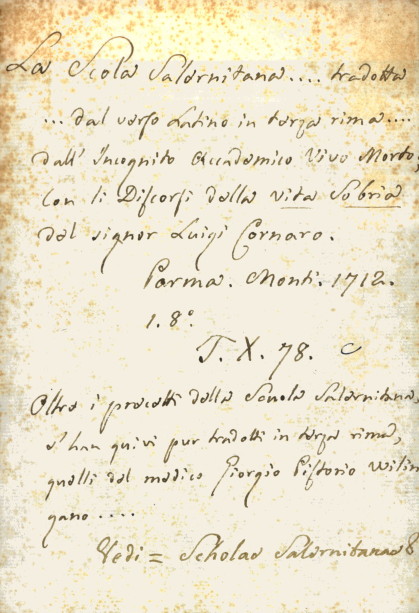 La Scola Salernitana .... tradotta
... dal verso Latino in terza rima ....
dall' Incognito Accademico Vivo Morto;
con li Discorsi della vita Sobria
del signor Luigi Cornaro.
Parma. Monti. 1712.
1. 8°.
T. X. 78. C
Oltre i precetti della Scuola Salernitana,
s' han quivi pur tradotti in terza rima,
quelli del medico Giorgio Pistorio Wilin
gano ....
Vedi = Scholae Salernitanae &